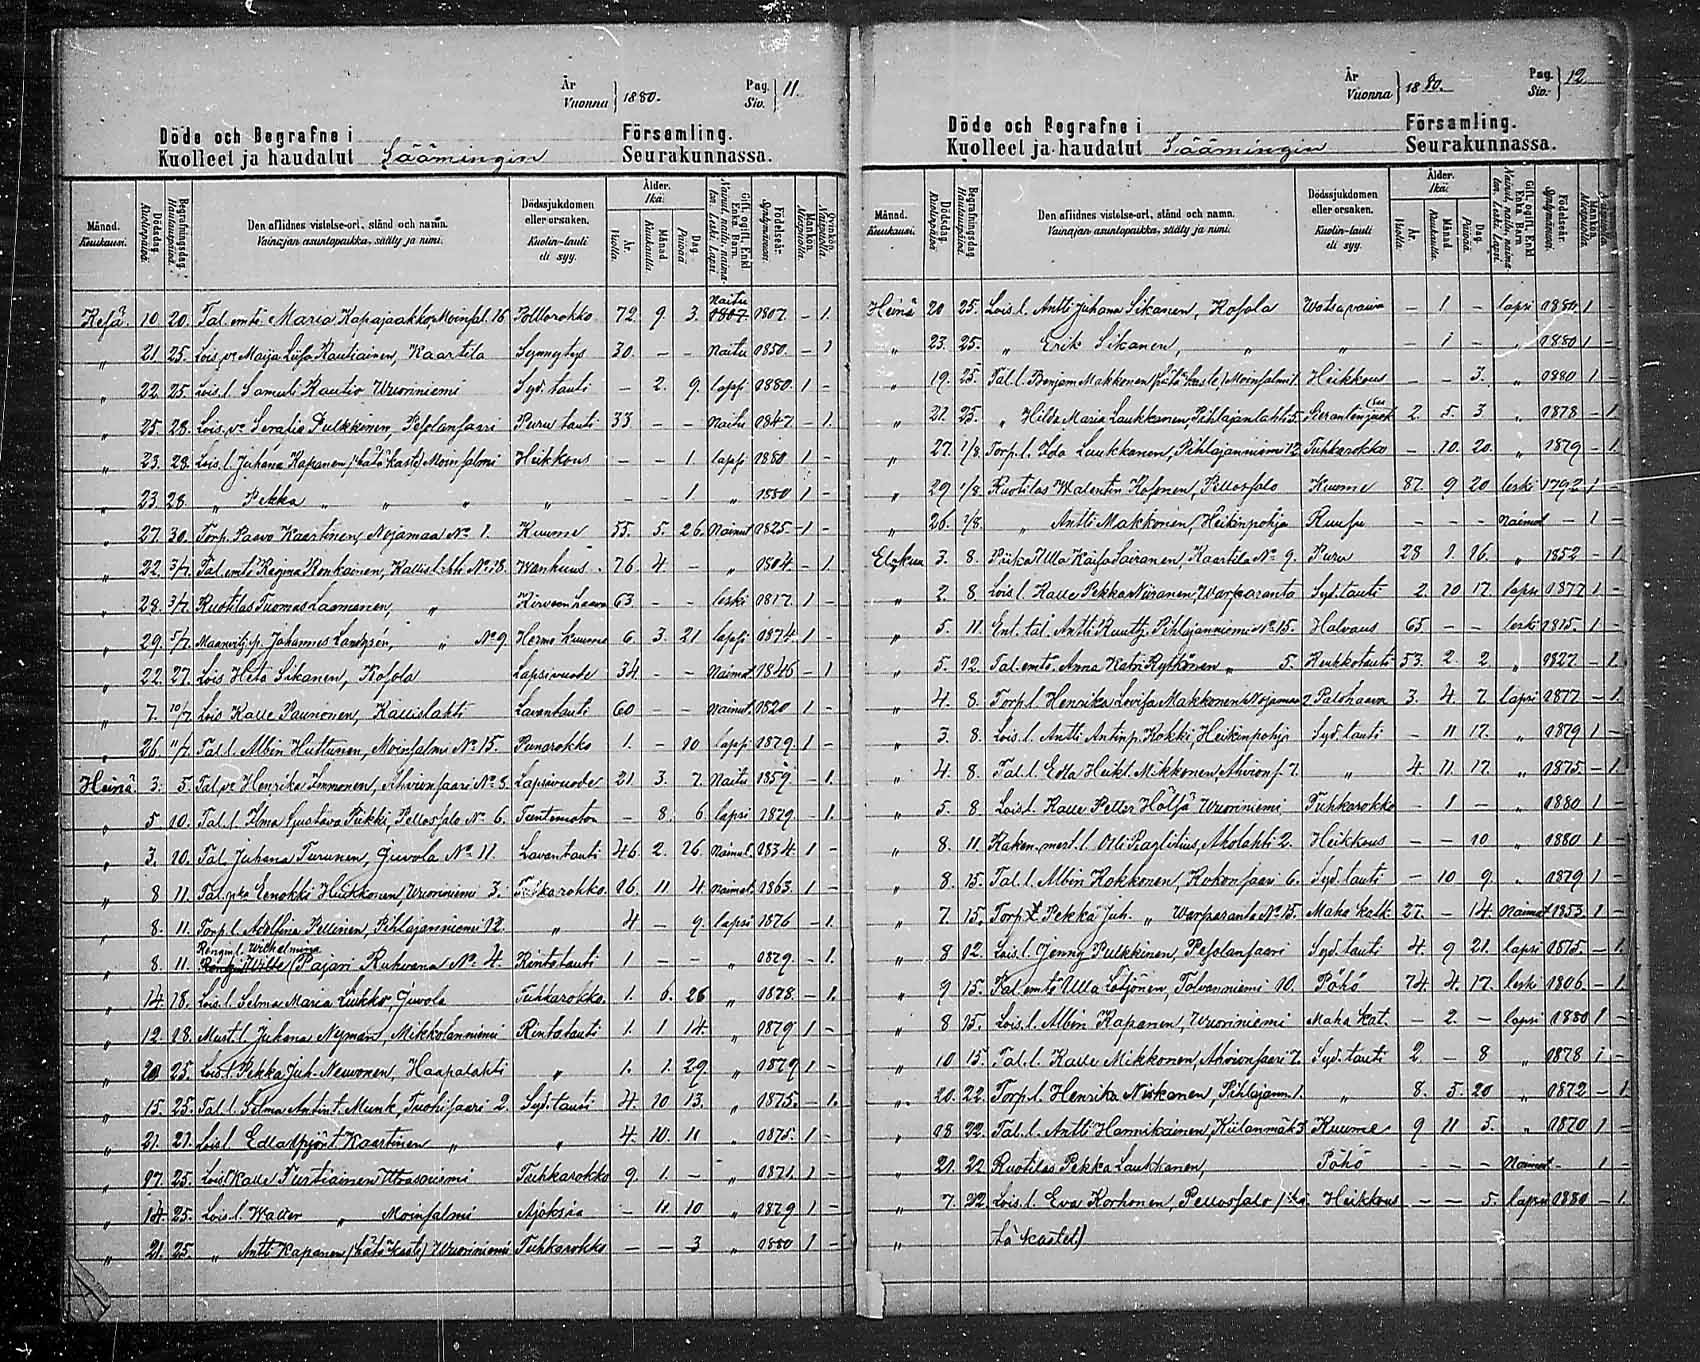 År Vuonna } 1880. Pag. Siv. } 11.
Döde och Begrafne i Församling.
Kuolleet ja haudatut Säämingin Seurakunnassa.
Månad. Kuukausi. Dödsdag. Kuolinpäivä. Begrafningsdag. Hautauspäivä. Den aflidnes vistelse-ort, stånd och namn. Vainajan asuntopaikka, sääty ja nimi. Dödssjukdomen eller orsaken. Kuolin-tauti eli syy. Ålder. Ikä. År. Vuotta. Månad. Kuukautta. Dag. Päivää. Gift, ogift, Enkl. Enka, Barn. Födelseår. Syntymävuosi. Mankön. Miespuolia. Qvinkön. Naispuolia.
Kesä. 10 20. Tal. emtä Maria Kapajaakko, Moinsal. 16 Polttorokko 72 9. 3. Naitu 1807 1807 - 1.
„ 21 25. Lois. v:o Maija Liisa Rautiainen, Kaartila Synnytys 30. - - Naitu 1850. - 1
„ 22. 25. Lois. l. Samuli Rautio Wuoriniemi Syd. tauti - 2. 9. lapsi 1880. 1 -
„ 25. 28. Lois. v:o Serafia Pulkkinen, Pesolansaari Puru tauti 33. - - Naitu 1847. - 1.
„ 23. 28. Lois. l. Juhana Kapanen /hätä kaste/ Moinsalmi Heikkous - - 1 lapsi 1880 1 -
„ 23 28 „ Pekka „ „ „ „ - - 1 „ 1880 1 -
„ 27. 30. Torp. Paavo Kaartinen, Nojamaa No 1. Kuume 55. 5. 26. Nainut 1825. 1 -
„ 22. 3/7. Tal. emtä Regina Ronkainen, Kallisl:hti No 18. Wanhuus. 76 4 - „ 1804 - 1.
„ 28. 3/7. Ruotilas Tuomas Laamanen, „ Kirveen haava 63. - - leski 1817. 1 -
„ 29. 5/7. Maanvilj. p. Johannes „ No 9. Hermo kuume 6. 3. 21 lapsi 1874 1 -
„ 22. 27. Lois Heta Sikanen, Kosola Lapsivuode 34 - - Nainut. 1846 - 1
„ 7. 10/7. Lois Kalle Paunonen, Kallislahti Lavantauti 60 - - Nainut. 1820 1 -
„ 26. 11/7. Tal. l. Albin Huttunen, Moinsalmi No 15. Punarokko 1. - 10 lapsi 1879 1 -
Heinä. 3. 5. Tal. v:o Henrika Immonen, Ahvionsaari No 8. Lapsivuode 21. 3. 7. Naitu 1859 - 1.
„ 5 10. Tal. l. Ilma Gustava Pukki, Pellossalo No 6. Tuntematon - 8. 6 lapsi 1879 - 1.
„ 3. 10. Tal. Juhana Turunen, Juvola No 11. Lavantauti 46 2. 26. Nainut. 1834 1 -
„ 8 11. Tal. pka Eenokki Heikkonen, Wuoriniemi 3. Tuhkarokko. 16. 11 4. Nainut. 1863. 1 -
„ 8. 11. Torp. l. Adolfina Pellinen, Pihlajanniemi 12. „ 4 - 9. lapsi 1876 - 1.
„ 8. 11. Rengin l. Wilhelmina Pajari Ruhvana No 4. Rintatauti 1 - - „ 1879 - 1.
„ 14. 18. Lois. l. Selma Maria Liukko, Juvola Tuhkarokko. 1. 6. 26 „ 1878. - 1.
„ 12. 18. Must. l. Juhana Nyman, Mikkolanniemi Rintatauti 1. 1 14. „ 1879 1 -
„ 20 25. Lois. l. Pekka Juh. Neuvonen, Haapalahti „ 1. 1. 29 „ 1879 1 -
„ 15. 25. Tal. l. Selma Antint. Munk, Tuohisaari 2. Syd. tauti 4. 10 13. „ 1875. - 1.
„ 21. 27. Lois. l. Kaartinen „ „ 4. 10. 11 „ 1875. 1 -
„ 17. 25. Lois. l. Kalle Turtiainen Utrasniemi Tuhkarokko 9. 1. - „ 1871. 1 -
„ 14. 25. Lois. l. Walter „ Moinsalmi Ajoksia - 11 10 „ 1879 1 -
„ 21. 25. „ Antti Kapanen /hätä kaste/ Wuoriniemi Tuhkarokko - - 3 „ 1880 1 -
År Vuonna } 1880. Pag. Siv. } 12.
Döde och Begrafne i Församling.
Kuolleet ja haudatut Säämingin Seurakunnassa.
Månad. Kuukausi. Dödsdag. Kuolinpäivä. Begrafningsdag. Hautauspäivä. Den aflidnes vistelse-ort, stånd och namn. Vainajan asuntopaikka, sääty ja nimi. Dödssjukdomen eller orsaken. Kuolin-tauti eli syy. Ålder. Ikä. År. Vuotta. Månad. Kuukautta. Dag. Päivää. Gift, ogift, Enkl. Enka, Barn. Födelseår. Syntymävuosi. Mankön. Miespuolia.
Heinä 20 25. Lois. l. Antti Juhana Sikanen, Kosola Watsapaiva - 1 - lapsi 1880. 1 -
„ 23. 25. „ Erik Sikanen, „ „ - 1 - „ 1880 1 -
„ 19. 25. Tal. l. Benjam Makkonen /hätä kaste/ Moinsalmi 1. Heikkous - - 3. „ 1880 1 -
„ 21. 25. „ Hilda Maria Laukkanen, Pihlajanlahti 5. 2. 5. 3 „ 1878 - 1.
„ 27. 1/8. Torp. l. Ida Luukkanen, Pihlajanniemi 12 Tuhkarokko - 10. 20. „ 1879 - 1.
„ 29 1/8. Ruotilas Walentin Kosonen, Pellossalo Kuume 87. 9 20 leski 1792 1 -
„ 26. 1/8. „ Antti Makkonen, Heikinpohja Ruusu - - - Nainut - 1 -
Elokuu 3. 8. Piika Ulla Kaisa Sairanen, Kaartila No 9. Puru 28 1. 16. „ 1852 - 1.
„ 2. 8 Lois. l. Kalle Pekka Niiranen, Warparanta Syd. tauti 2. 10 17. lapsi 1877 1 -
„ 5. 11. Ent. tal. Antti Ruutti, Pihlajanniemi No 15. Halvaus 65 - - leski 1815. 1 -
„ 5. 12. Tal. emtä Anna Katri Rytkönen „ 5. Keuhkotauti 53. 2. 2 „ 1827 - 1.
„ 4. 8. Torp. l. Henrika Lovisa Makkonen Nojamaa 2 Palohaava 3. 4 7. lapsi 1877 - 1.
„ 3. 8. Lois. l. Antti Antinp. Kokki, Heikinpohja Syd. tauti - 11 17. „ 1879 1 -
„ 4. 8. Tal. l. Edla Heikl. Mikkonen, Ahvions. 7. „ 4. 11. 17. „ 1875. - 1.
„ 5. 8 Lois. l. Kalle Petter Hölsä Wuoriniemi Tuhkarokko - 1 - „ 1880 1 -
„ 8. 11. Raken. mest. l. Otti Aholahti 2. Heikkous - - 10 „ 1880 1 -
„ 8. 15. Tal. l. Albin Kokkonen, Kokonsaari 6. Syd. tauti - 10 9 „ 1879 1 -
„ 7. 15. Torp. Pekka Juh. „ Warparanta No 15. Maha kat. 27. - 14. Nainut 1853. 1 -
„ 8 12. Lois. l. Jenny Pulkkinen, Pesolansaari Syd. tauti 4. 9 21. lapsi 1875. - 1.
„ 9 15. Tal. emtä Ulla Lötjönen, Tolvanniemi 10. Pöhö 74. 4. 17. leski 1806. - 1.
„ 8 15. Lois. l. Albin Kapanen, Wuoriniemi Maha kat. - 2. - lapsi 1880 1 -
„ 10 15. Tal. l. Kalle Mikkonen, Ahvionsaari 7. Syd. tauti 2. - 8 „ 1878 1 -
„ 20. 22. Torp. l. Henrika Niskanen, Pihlajann. 1. „ 8. 5. 20 „ 1872 - 1.
„ 18 22. Tal. l. Antti Hannikainen, Kiilanmäki 3 Kuume 9 11 5. „ 1870 1 -
„ 21. 22. Ruotilas Pekka Laukkanen, Pöhö - - - Nainut - 1 -
„ 7. 22. Lois. l. Eva Korhonen, Pellossalo /hä- Heikkous - - 5. lapsi 1880 - 1.
„ tä kaste/.